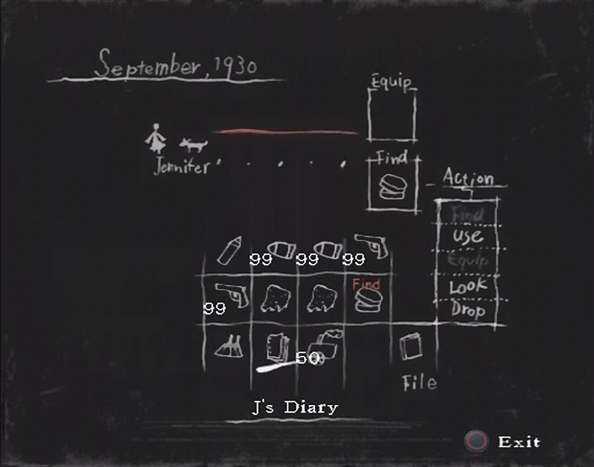 September, 1930
Equip
Jennifer
Find
Action
Find
Use
Equip
Look
Drop
99 99 99
99
Find
50
File
J's Diary
Exit